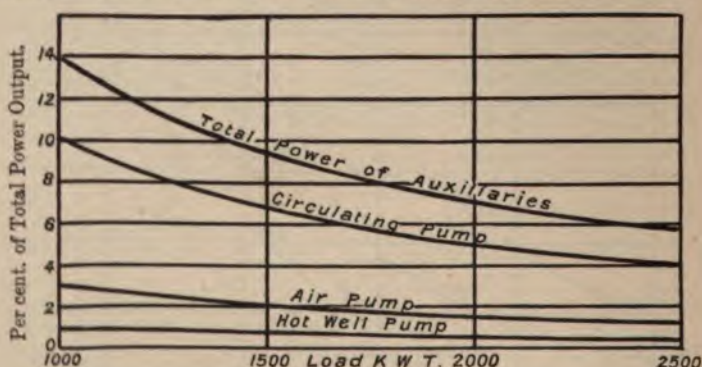 Per cent. of Total Power Output.
14
12
10
8
6
4
2
0
Total Power of Auxillaries
Circulating Pump
Air Pump
Hot Well Pump
1000 1500 Load K W T. 2000 2500